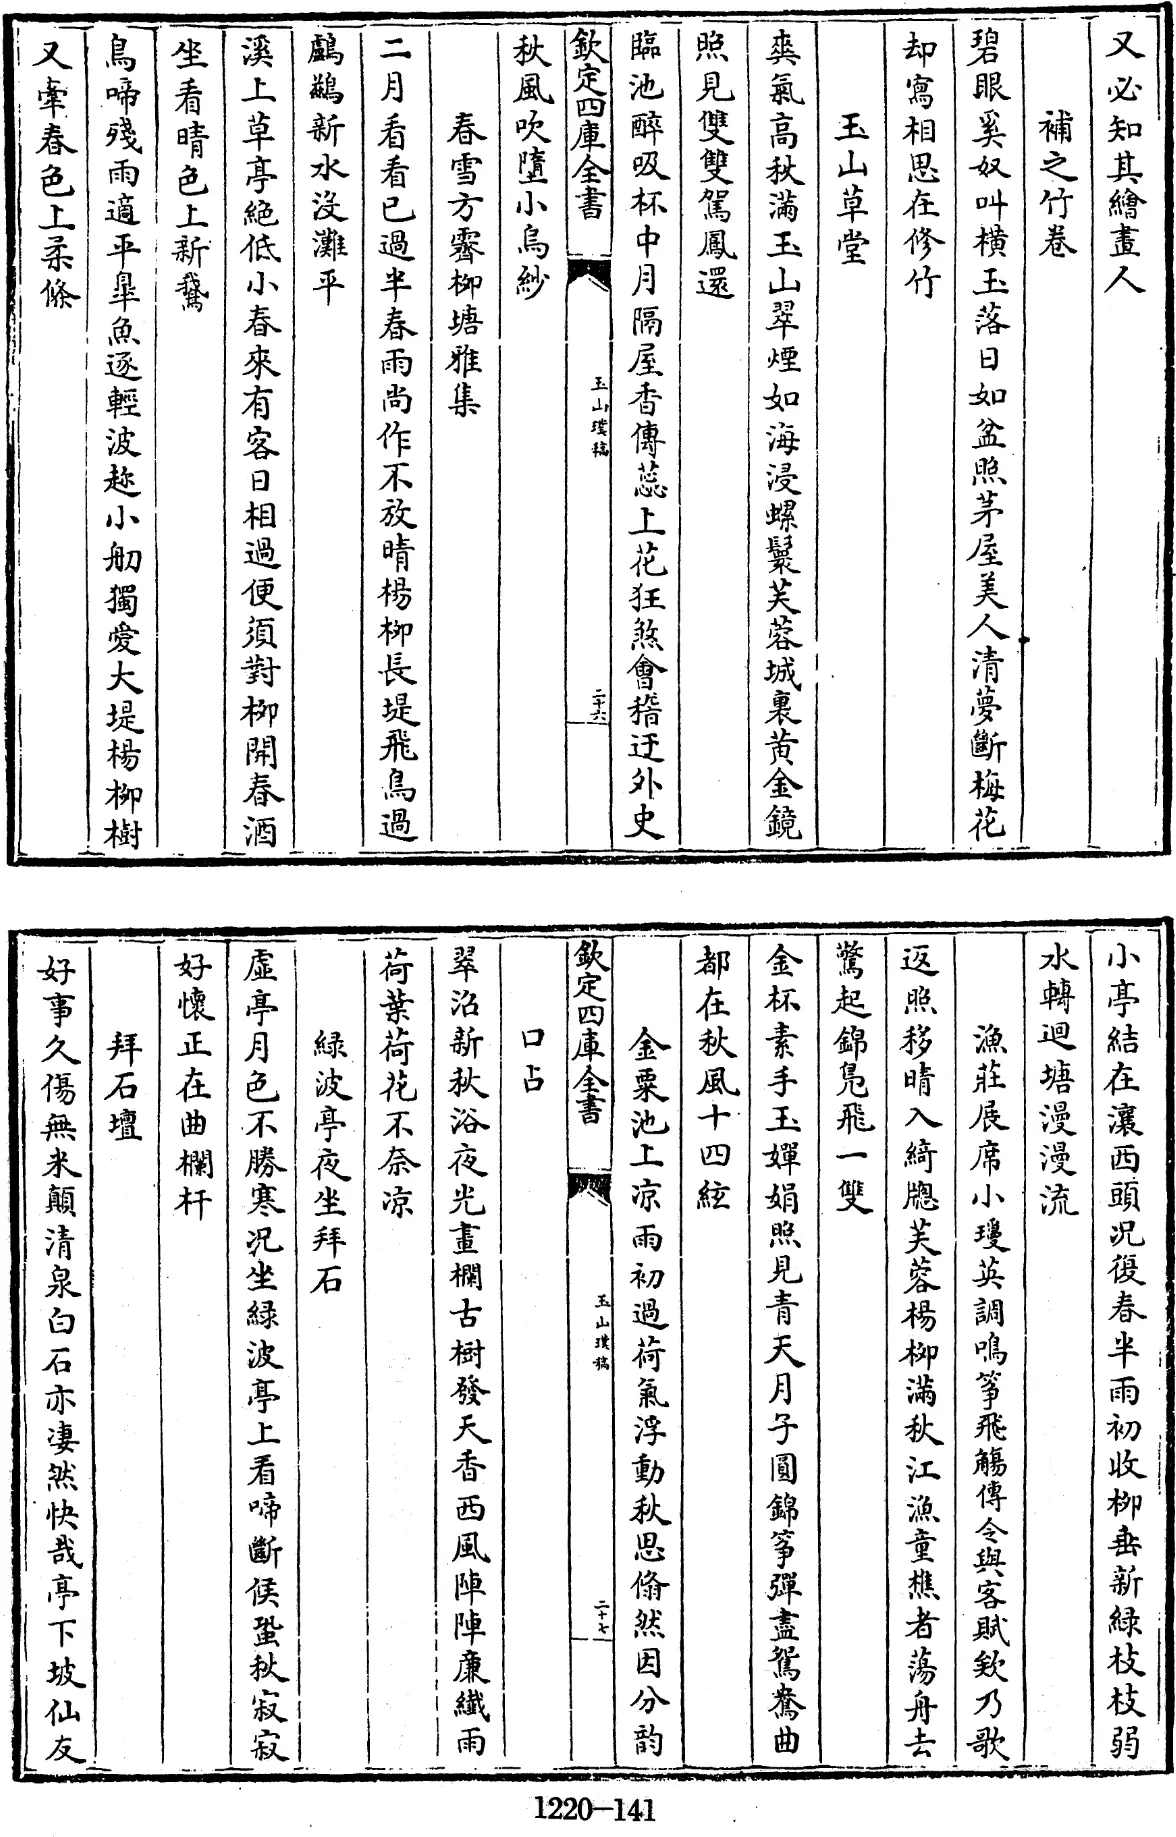 又必知其繪畫人
補之竹卷
碧眼奚奴叫橫玉落日如盆照茅屋美人清夢斷梅花
却寫相思在修竹
玉山草堂
爽氣高秋滿玉山翠煙如海浸螺鬟芙蓉城裏黄金鏡
照見雙雙駕鳳還
臨池醉吸杯中月隔屋香傳蕊上花狂煞會稽迂外史
欽定四庫全書
玉山璞稿
二十六
秋風吹墮小烏紗
春雪方霽柳塘雅集
二月看看已過半春雨尚作不放晴楊柳長堤飛鳥過
鸕鷀新水没灘平
溪上草亭絶低小春來有客日相過便須對柳開春酒
坐看晴色上新鵞
鳥啼殘雨適平臯魚逐輕波趂小舠獨愛大堤楊柳樹
又牽春色上柔條
小亭結在瀼西頭况復春半雨初收柳垂新緑枝枝弱
水轉迴塘漫漫流
漁莊展席小瓊英調鳴箏飛觴傳令與客賦欸乃歌
返照移晴入綺牕芙蓉楊柳滿秋江漁童樵者蕩舟去
驚起錦鳬飛一雙
金杯素手玉嬋娟照見青天月子圓錦箏彈盡鴛鴦曲
都在秋風十四絃
金粟池上凉雨初過荷氣浮動秋思翛然因分韵
欽定四庫全書
玉山璞稿
二十七
口占
翠沼新秋浴夜光畫欄古樹發天香西風陣陣廉纖雨
荷葉荷花不奈凉
緑波亭夜坐拜石
虚亭月色不勝寒况坐緑波亭上看啼斷候蛩秋寂寂
好懷正在曲欄杆
拜石壇
好事久傷無米顛清泉白石亦凄然快哉亭下坡仙友
1220-141